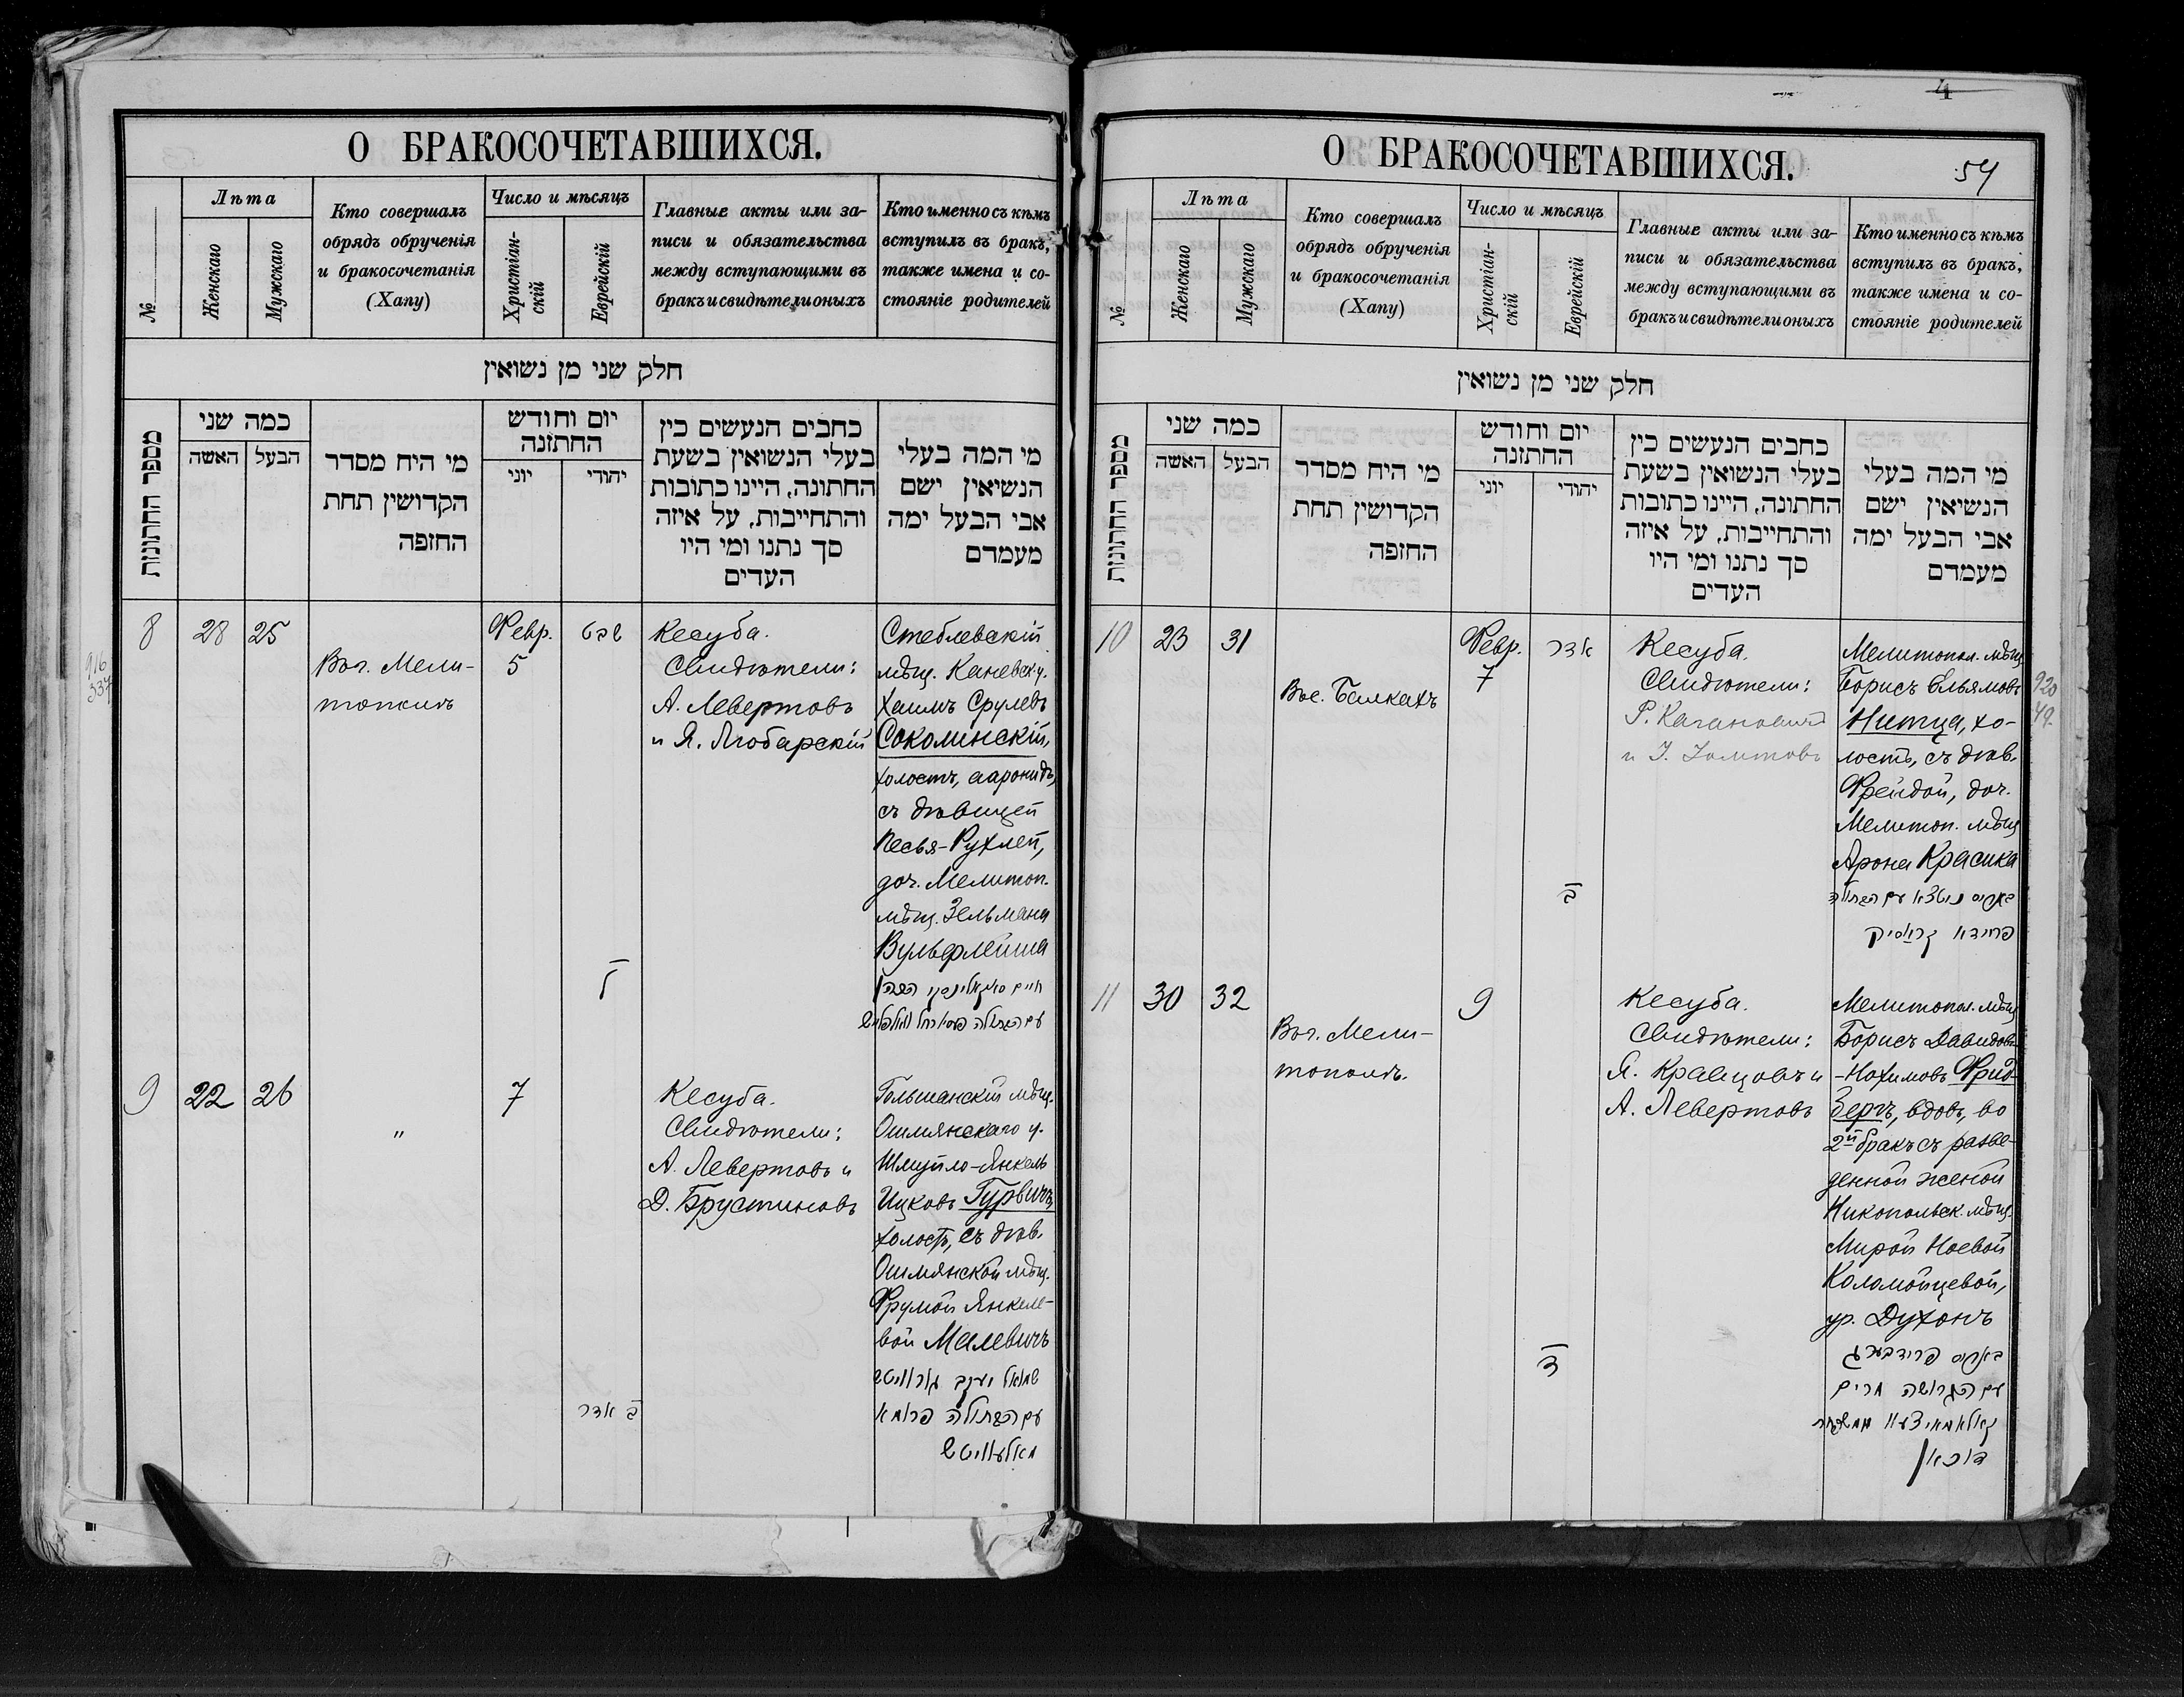 О БРАКОСОЧЕТАВШИХСЯ.
№
Лѣта
Женскаго
Мужскаго
Кто совершалъ
обрядъ обрученія
и бракосочетанія
(Хапу)
Число и мѣсяцъ
Христіан-
скій
Еврейскій
Главные акты или за-
писи и обязательства
между вступающими въ
бракъ и свидѣтели оныхъ
Кто именно съ кѣмъ
вступилъ въ бракъ,
также имена и со-
стояніе родителей
חלק שני מן נשואין
מספר החתונות
כמה שני
האשה
הבעל
מי היח מסדר
הקדושין תחת
החופה
יום וחודש
החתונה
יוני
יהודי
כחבים הנעשים כין
בעלי הנשואין בשעת
החתונה, היינו כתובות
והתחייבות, על איזה
סך נתנו ומי היו
העדים
מי המה בעלי
הנשיאין ישם
אבי הבעל ימה
מעמדם
8
28
25
Въ г. Мели-
тополѣ
Февр.
5
שבט
ל
Кесуба.
Свидѣтели:
А. Левертовъ
и Я. Любарскій
Стеблевскій
мѣщ. Каневск. у.
Хаимъ Срулевъ
Соколинскій,
холостъ, ааронидъ,
съ дѣвицей
Песья-Рухлей,
доч. Мелитоп.
мѣщ. Зельмана
Вульфлейша
916
337
9
22
26
"
7
ב אדר
Кесуба.
Свидѣтели:
А. Левертовъ и
Д. Брустиновъ
Гольшанскій мѣщ.
Ошмянскаго у.
Шмуйло-Янкель
Ицковъ Гурвичъ,
холостъ, съ дѣв.
Ошмянской мѣщ.
Фрумой Янкеле-
вой Малевичъ
שמואל יעקב גורוויטש
עם הבתולה פרומא
מאלעוויטש
4
О БРАКОСОЧЕТАВШИХСЯ.
54
№
Лѣта
Женскаго
Мужскаго
Кто совершалъ
обрядъ обрученія
и бракосочетанія
(Хапу)
Число и мѣсяцъ
Христіан-
скій
Еврейскій
Главные акты или за-
писи и обязательства
между вступающими въ
бракъ и свидѣтели оныхъ
Кто именно съ кѣмъ
вступилъ въ бракъ,
также имена и со-
стояніе родителей
חלק שני מן נשואין
מספר החתונות
כמה שני
האשה
הבעל
מי היח מסדר
הקדושין תחת
החופה
יום וחודש
החתונה
יוני
יהודי
כחבים הנעשים כין
בעלי הנשואין בשעת
החתונה, היינו כתובות
והתחייבות, על איזה
סך נתנו ומי היו
העדים
מי המה בעלי
הנשיאין ישם
אבי הבעל ימה
מעמדם
10
23
31
Въ с. Балкахъ
Февр.
7
אדר
ב
Кесуба.
Свидѣтели:
Р. Кагановичъ
и
Мелитопол. мѣщ.
Борисъ Ельямовъ
Нитца, хо-
лостъ, съ дѣв.
Фрейдой, доч.
Мелитоп. мѣщ
Арона Красика
באריס ניטצא עם הבתולה
פריידא קראסיק
920
49.
11
30
32
Въ г. Мели-
тополѣ.
9
ד
Кесуба.
Свидѣтели:
Я. Кравцовъ и
А. Левертовъ
Мелитопол. мѣщ
Борисъ Давидовъ
-Нохимовъ Фрид-
бергъ, вдов, во
2й бракъ съ разве-
денной женой
Никопольск. мѣщ.
Мирой Ноевой
Коломойцевой,
ур. Духонъ
באריס פרידבערג
עם הגרושה מרים
דוכאן